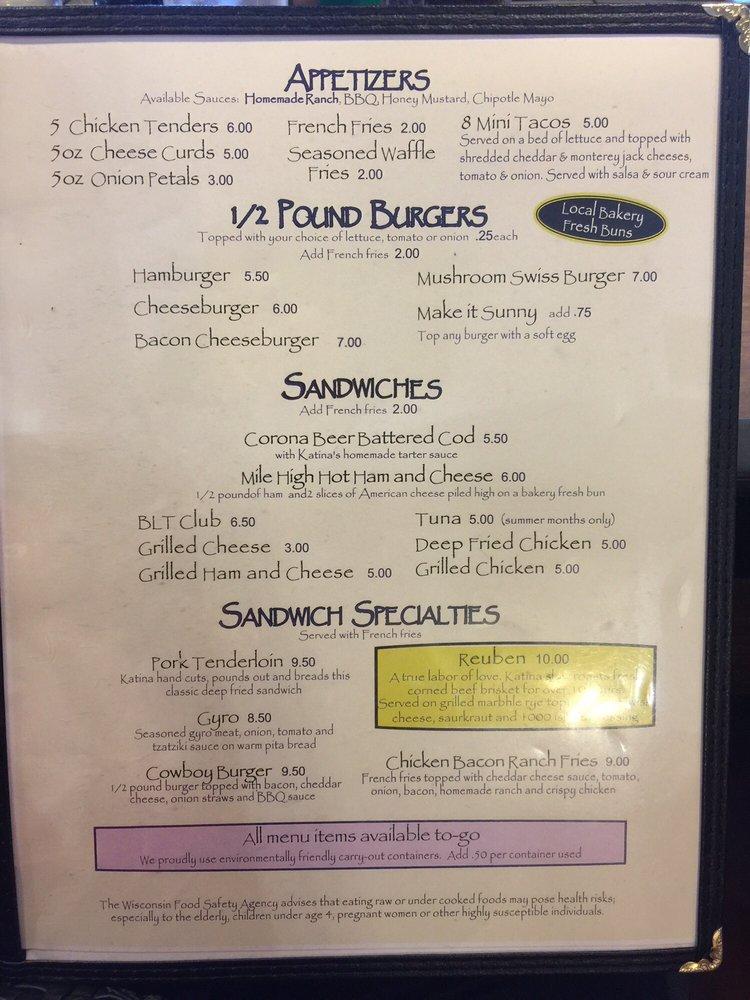 APPETIZERS
Available Sauces: Homemade Ranch, BBQ, Honey Mustard, Chipotle Mayo
5 Chicken Tenders 6.00
5oz Cheese Curds 5.00
5oz Onion Petals 3.00
French Fries 2.00
Seasoned Waffle
Fries 2.00
8 Mini Tacos 5.00
Served on a bed of lettuce and topped with
shredded cheddar & monterey jack cheeses,
tomato & onion. Served with salsa & sour cream
1/2 POUND BURGERS
Local Bakery
Fresh Buns
Topped with your choice of lettuce, tomato or onion .25each
Add French fries 2.00
Hamburger 5.50
Cheeseburger 6.00
Bacon Cheeseburger 7.00
Mushroom Swiss Burger 7.00
Make it Sunny add .75
Top any burger with a soft egg
SANDWICHES
Add French fries 2.00
Corona Beer Battered Cod 5.50
with Katina's homemade tarter sauce
Mile High Hot Ham and Cheese 6.00
1/2 poundof ham and2 slices of American cheese piled high on a bakery fresh bun
BLT Club 6.50
Grilled Cheese 3.00
Grilled Ham and Cheese 5.00
Tuna 5.00 (summer months only)
Deep Fried Chicken 5.00
Grilled Chicken 5.00
SANDWICH SPECIALTIES
Served with French fries
Pork Tenderloin 9.50
Katina hand cuts, pounds out and breads this
classic deep fried sandwich
Gyro 8.50
Seasoned gyro meat, onion, tomato and
tzatziki sauce on warm pita bread
Cowboy Burger 9.50
1/2 pound burger topped with bacon, cheddar
cheese, onion straws and BBQ sauce
Reuben 10.00
A true labor of love. Katina roasts fresh
corned beef brisket for over
Served on grilled marbhle rye
cheese, saurkraut and 1000
Chicken Bacon Ranch Fries 9.00
French fries topped with cheddar cheese sauce, tomato,
onion, bacon, homemade ranch and crispy chicken
All menu items available to-go
We proudly use environmentally friendly carry-out containers. Add .50 per container used
The Wisconsin Food Safety Agency advises that eating raw or under cooked foods may pose health risks;
especially to the elderly, children under age 4, pregnant women or other highly susceptible individuals.